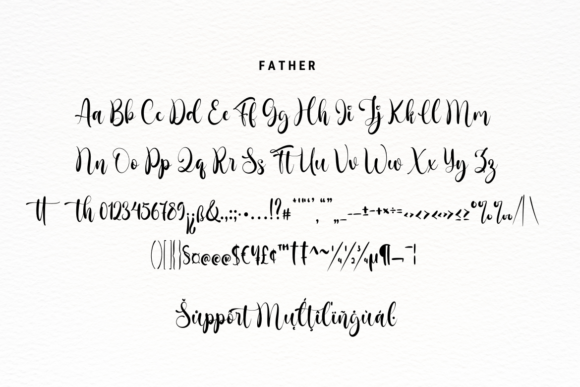 FATHER
Aa Bb Cc Dd Ee Ff Gg Hh Ii Jj Kk Ll Mm
Nn Oo Pp Qq Rr Ss Tt Uu Vv Ww Xx Yy Zz
tt th 0123456789¡¿ß&.,:;·•…!?#
$€¥£¢™†‡^~
Support Multilingual